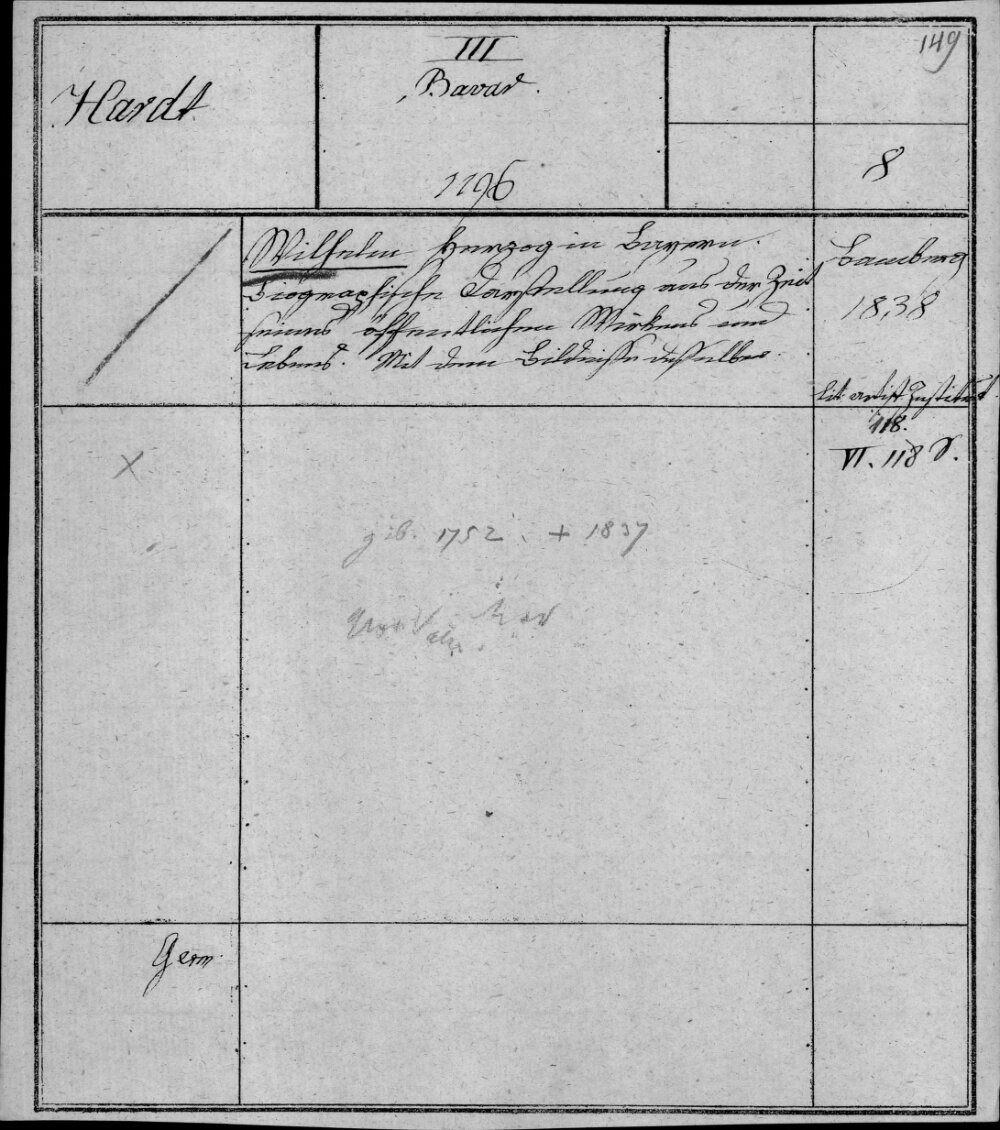 149
Hardt
III
Bavar.
1196
8
Wilhelm Herzog in Bayern.
Biographische Darstellung aus der Zeit
seines öffentlichen Wirkens und
Lebens. Mit dem Bildnisse desselben.
Bamberg
1838
Lit. artist. Institut.
118.
VI. 118 S.
X
geb. 1752. + 1837
Germ.